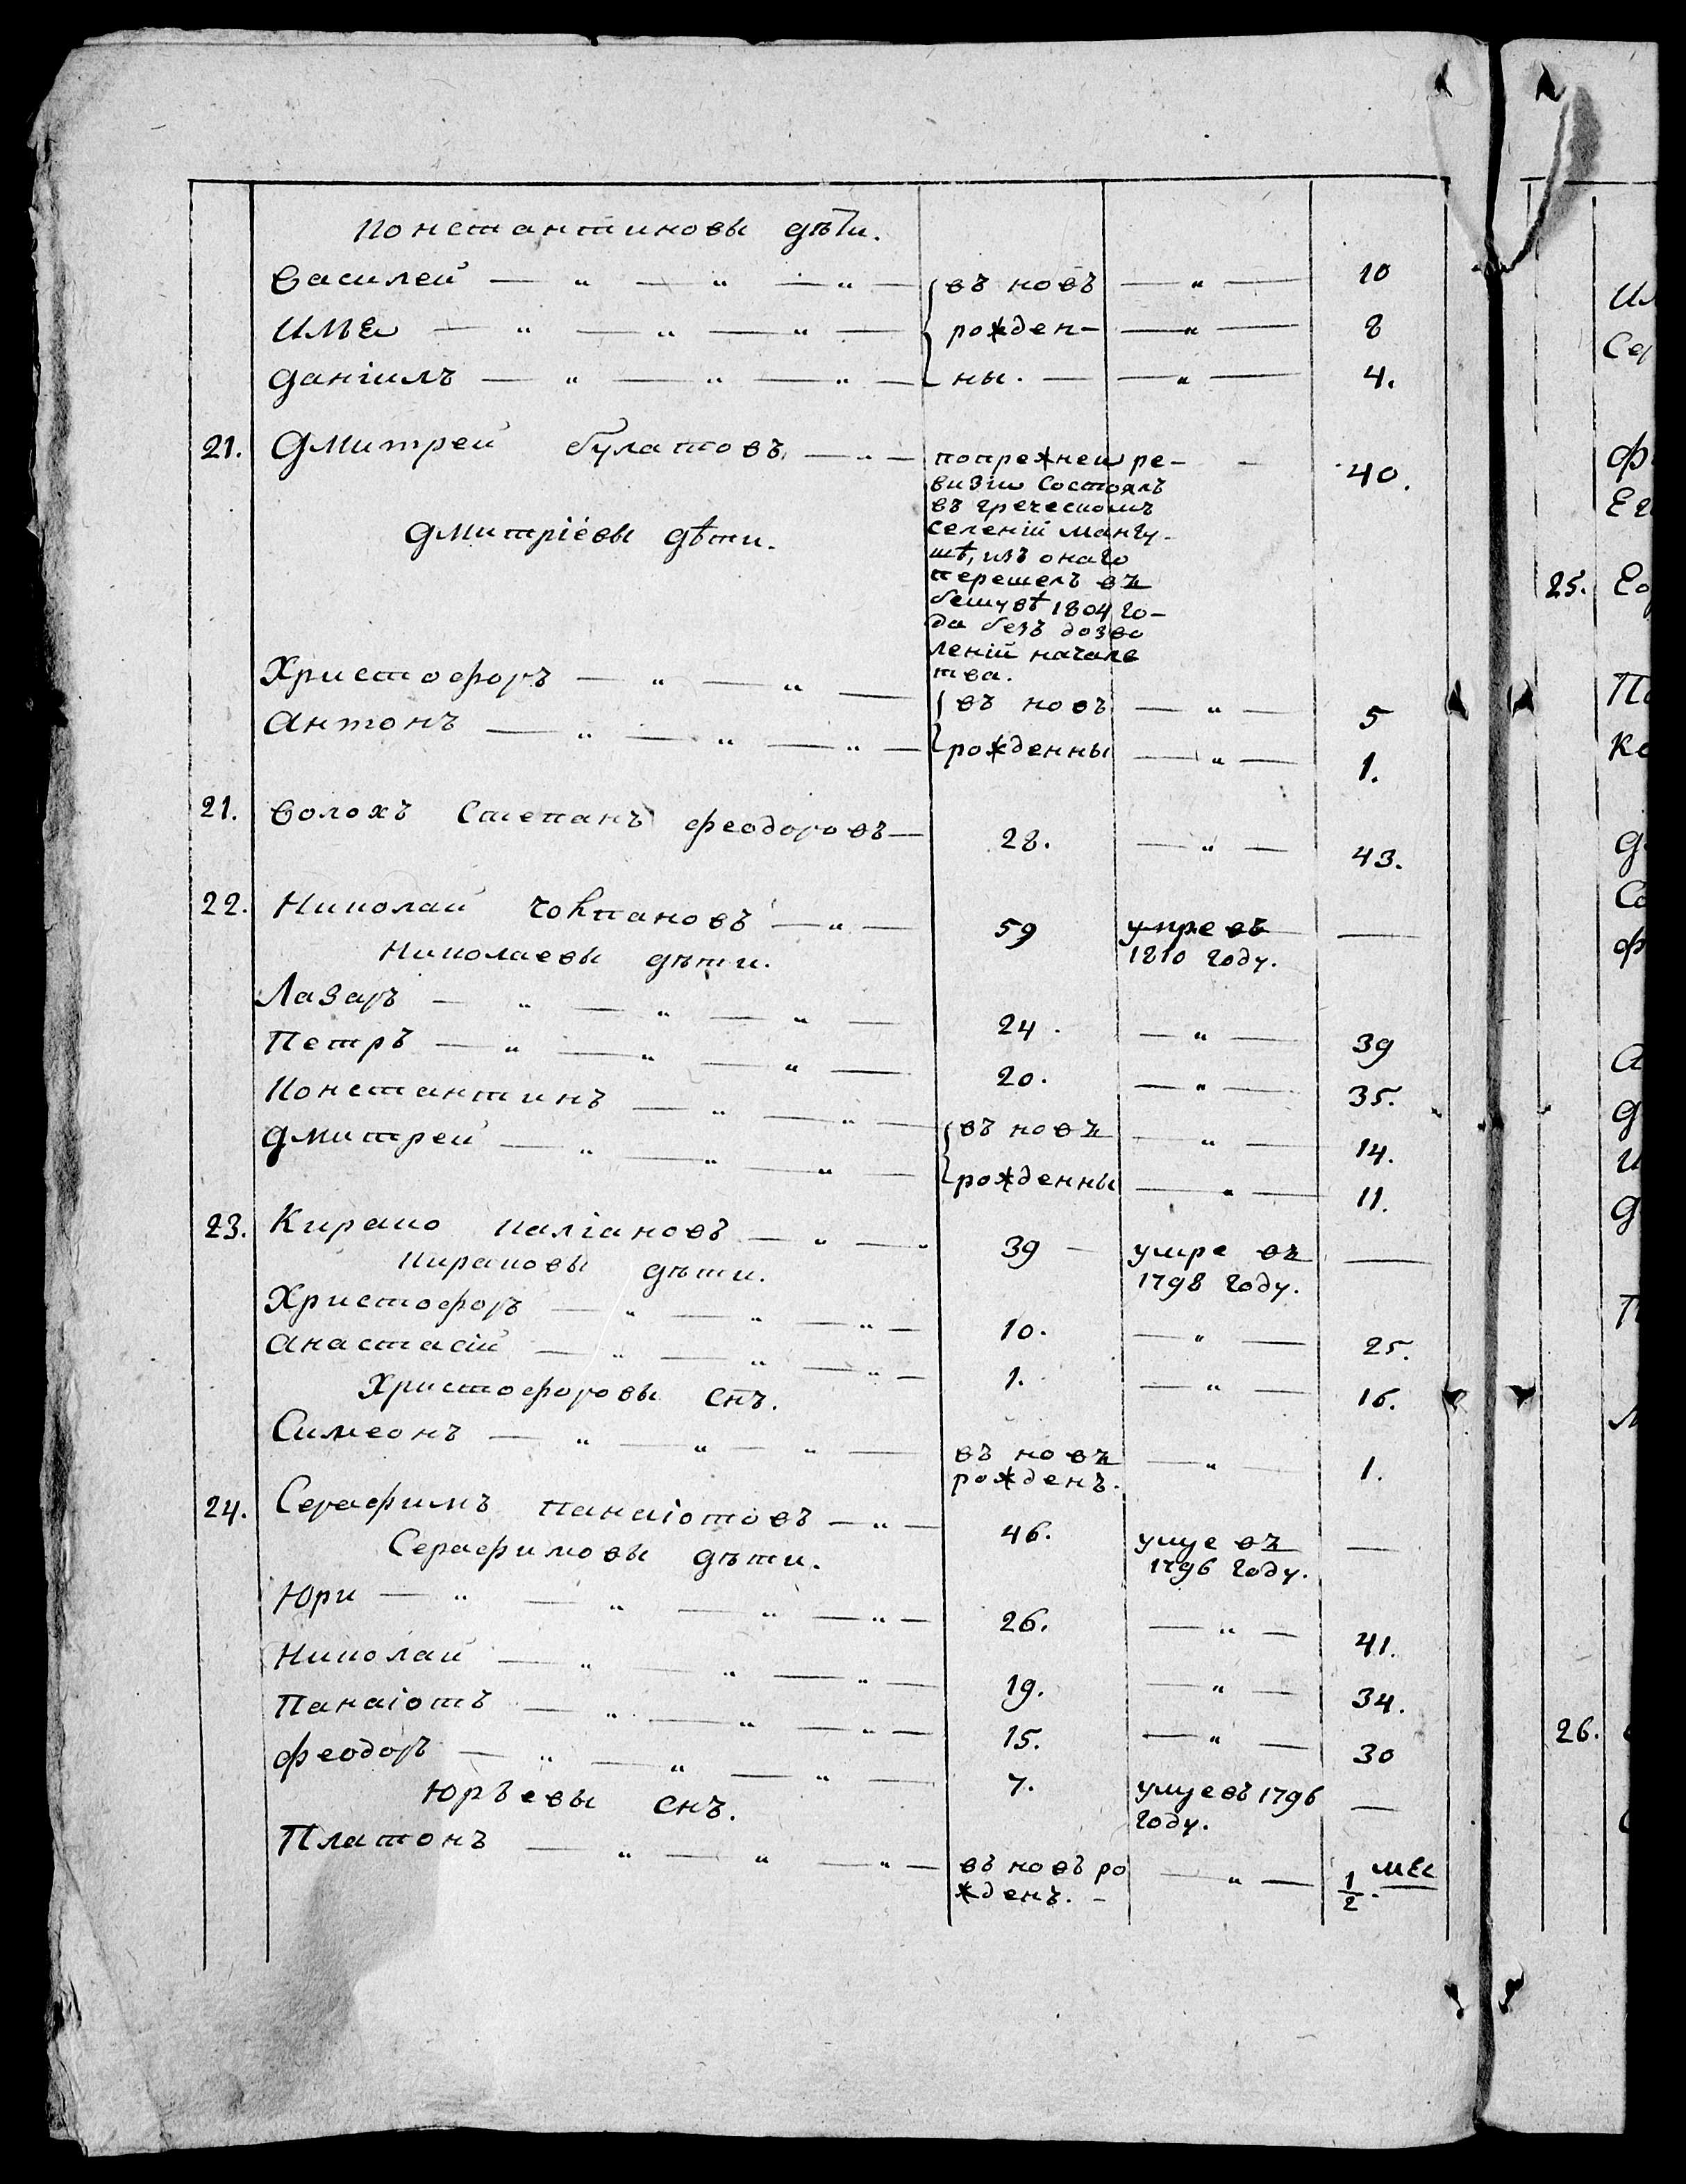 Константиновы дѣти.
Василей — " — " — " — въ новъ — " — 10
Илѣя — " — " — " — рожден- — " — 8
Даніилъ — " — " — " — ны. — " — 4.
21. Дмитрей Булатовъ — " — попрежней ре- — 40.
визіи состоялъ
въ греческомъ
Дмитріевы дѣти. селеніи Мангу-
шѣ, изъ онаго
перешелъ въ
Бешувѣ 1804 го-
да безъ дозво
леній началс
тва.
Христофоръ — " — " — въ новъ — " — 5
Антонъ — " — " — " — рожденны — " — 1.
21. Волохъ Степанъ Феодоровъ — 28. — " — 43.
22. Николай Чокпановъ — " — 59 умре въ —
Николаевы дѣти. 1810 году.
Лазарь — " — " — " — 24. — " — 39
Петръ — " — " — " — 20. — " — 35.
Константинъ — " — " — въ новъ — " — 14.
Дмитрей — " — " — " — рожденны — " — 11.
23. Кирако Каліановъ — " — " 39 — умре въ —
Кираковы дѣти. 1798 году.
Христофоръ — " — " — " — 10. — " — 25.
Анастасій — " — " — " — 1. — " — 16.
Христофоровы снъ.
Симеонъ — " — " — " — въ новъ — " — 1.
рожденъ.
24. Серафимъ Панаіотовъ — " — 46. умре въ —
Серафимовы дѣти. 1796 году.
Юри — " — " — " — " — 26. — " — 41.
Николай — " — " — " — 19. — " — 34.
Панаіотъ — " — " — " — 15. — " — 30
Феодоръ — " — " — " — 7. умре въ 1796 —
Юрьевы снъ. году.
Платонъ — " — " — " — въ новъ ро — " — 1/2. мѣс
жденъ. -
25.
26.